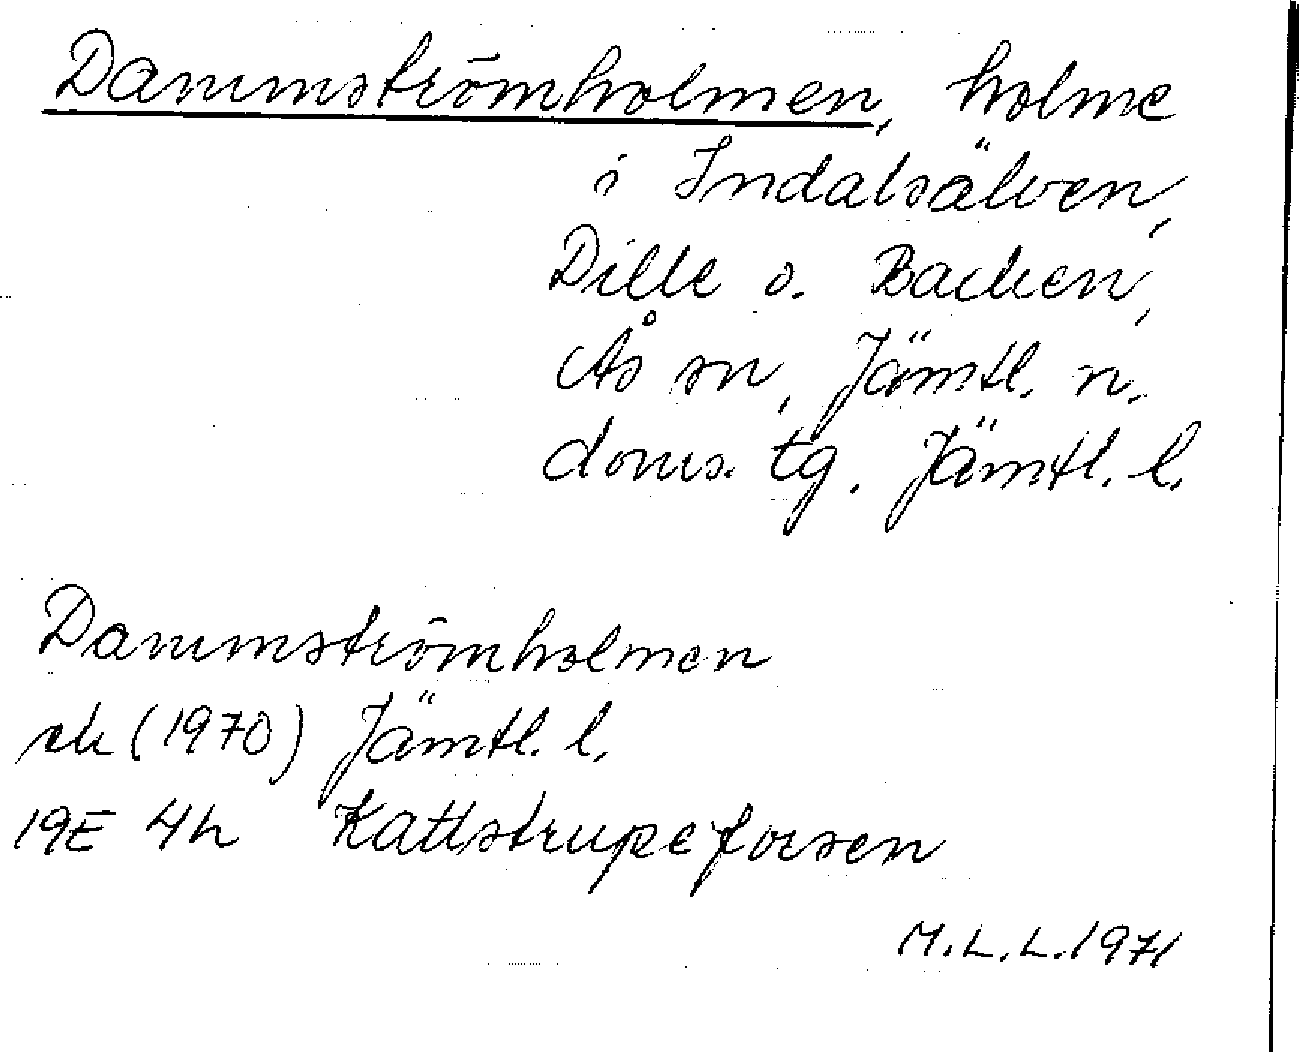 Dammströmholmen, holme
i Indalsälven,
Dille o. Backen,
Ås sn, Jämtl. n.
doms. tg. Jämtl. l.
Dammströmholmen
ek (1970) Jämtl. l.
19E 4h Kattstrupeforsen
M.L.L. 1971